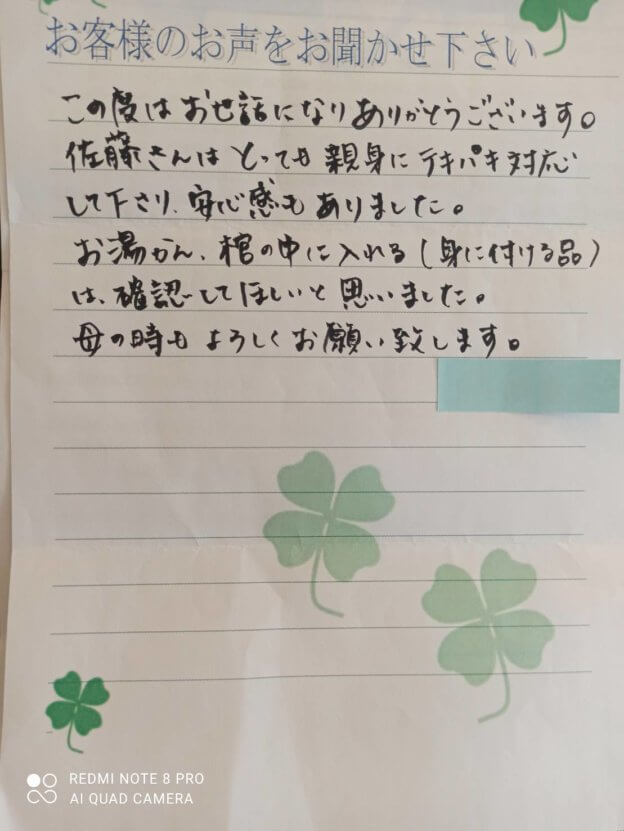 お客様のお声をお聞かせ下さい
この度はお世話になりありがとうございます。
佐藤さんはとっても親身にテキパキ対応
して下さり、安心感もありました。
お湯かん、棺の中に入れる(身に付ける品)
は、確認してほしいと思いました。
母の時もよろしくお願い致します。
REDMI NOTE 8 PRO
AI QUAD CAMERA